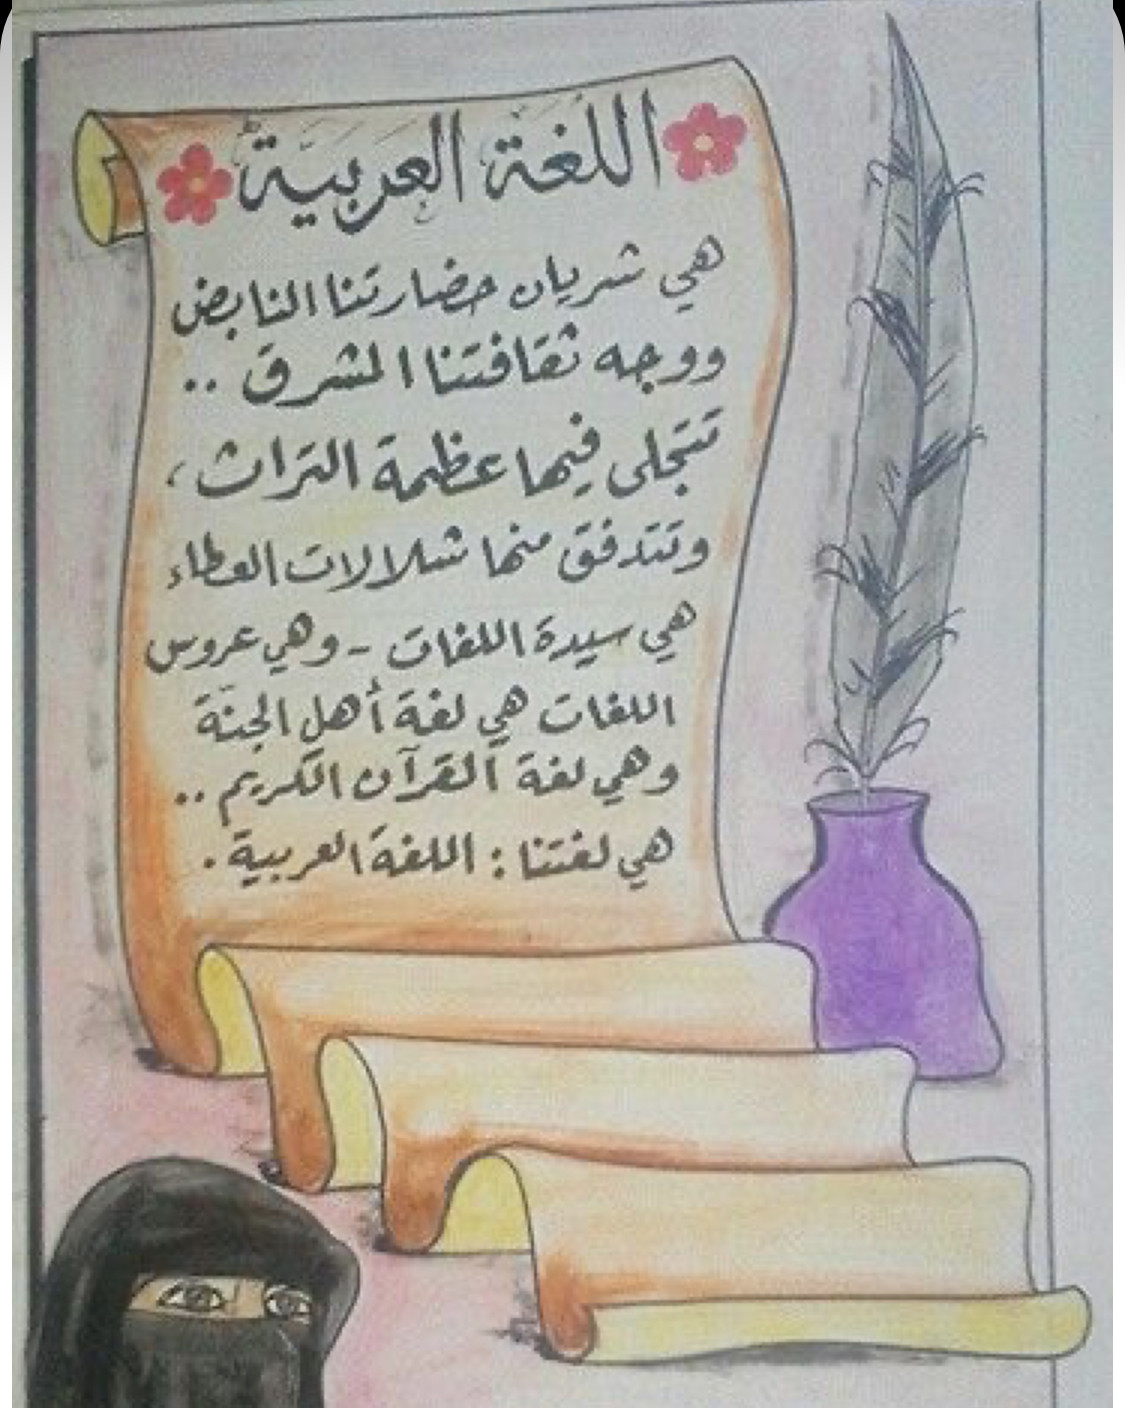 اللغة العربية
هي شريان حضارتنا النابض
ووجه ثقافتنا المشرق ..
تتجلى فيها عظمة التراث ،
وتتدفق منها شلالات العطاء
هي سيدة اللغات - وهي عروس
اللغات هي لغة أهل الجنّة
وهي لغة القرآن الكريم ..
هي لغتنا : اللغة العربية .